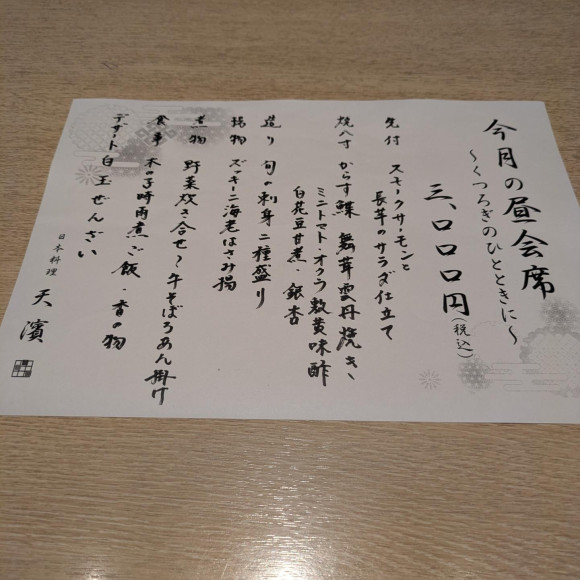 今月の昼会席
～くつろぎのひとときに～
三、〇〇〇円(税込)
先付 スモークサーモンと
長芋のサラダ仕立て
焼八寸 からす鰈 舞茸雲丹焼き、
ミニトマト・オクラ敷黄味酢
白花豆甘煮・銀杏
造り 旬の刺身二種盛り
揚物 ズッキーニ海老はさみ揚
煮物 野菜炊き合せ～牛そぼろあん掛け
食事 木の子時雨煮ご飯・香の物
デザート 白玉ぜんざい
日本料理 天濱